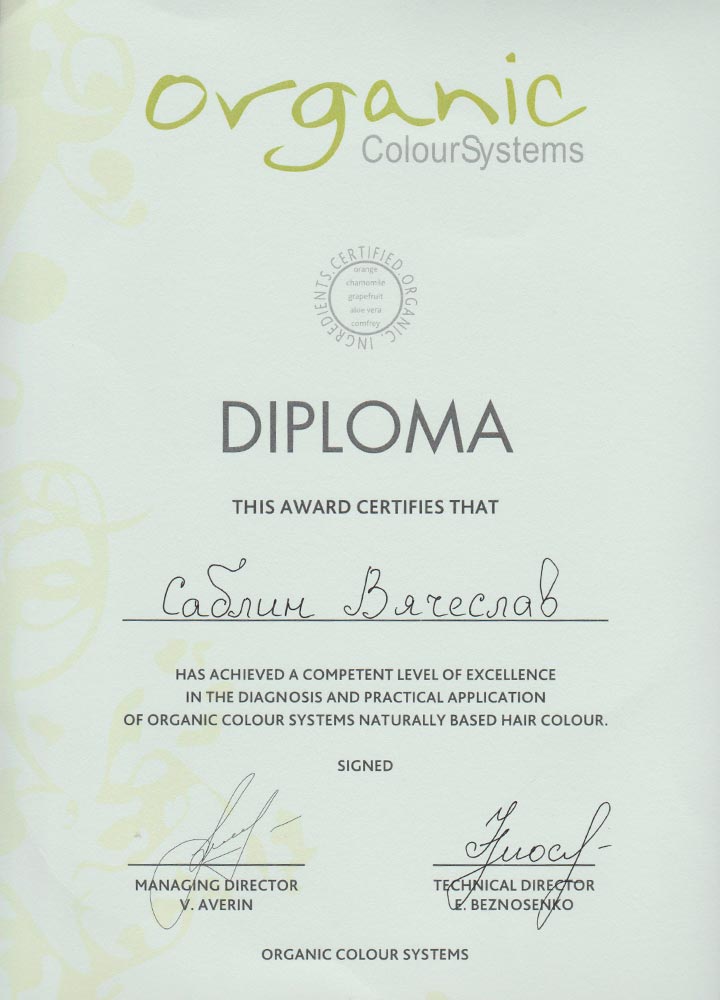 organic
ColourSystems
INGREDIENTS.CERTIFIED.ORGANIC.
orange
chamomile
grapefruit
aloe vera
comfrey
DIPLOMA
THIS AWARD CERTIFIES THAT
Саблин Вячеслав
HAS ACHIEVED A COMPETENT LEVEL OF EXCELLENCE
IN THE DIAGNOSIS AND PRACTICAL APPLICATION
OF ORGANIC COLOUR SYSTEMS NATURALLY BASED HAIR COLOUR.
SIGNED
MANAGING DIRECTOR
V. AVERIN
TECHNICAL DIRECTOR
E. BEZNOSENKO
ORGANIC COLOUR SYSTEMS